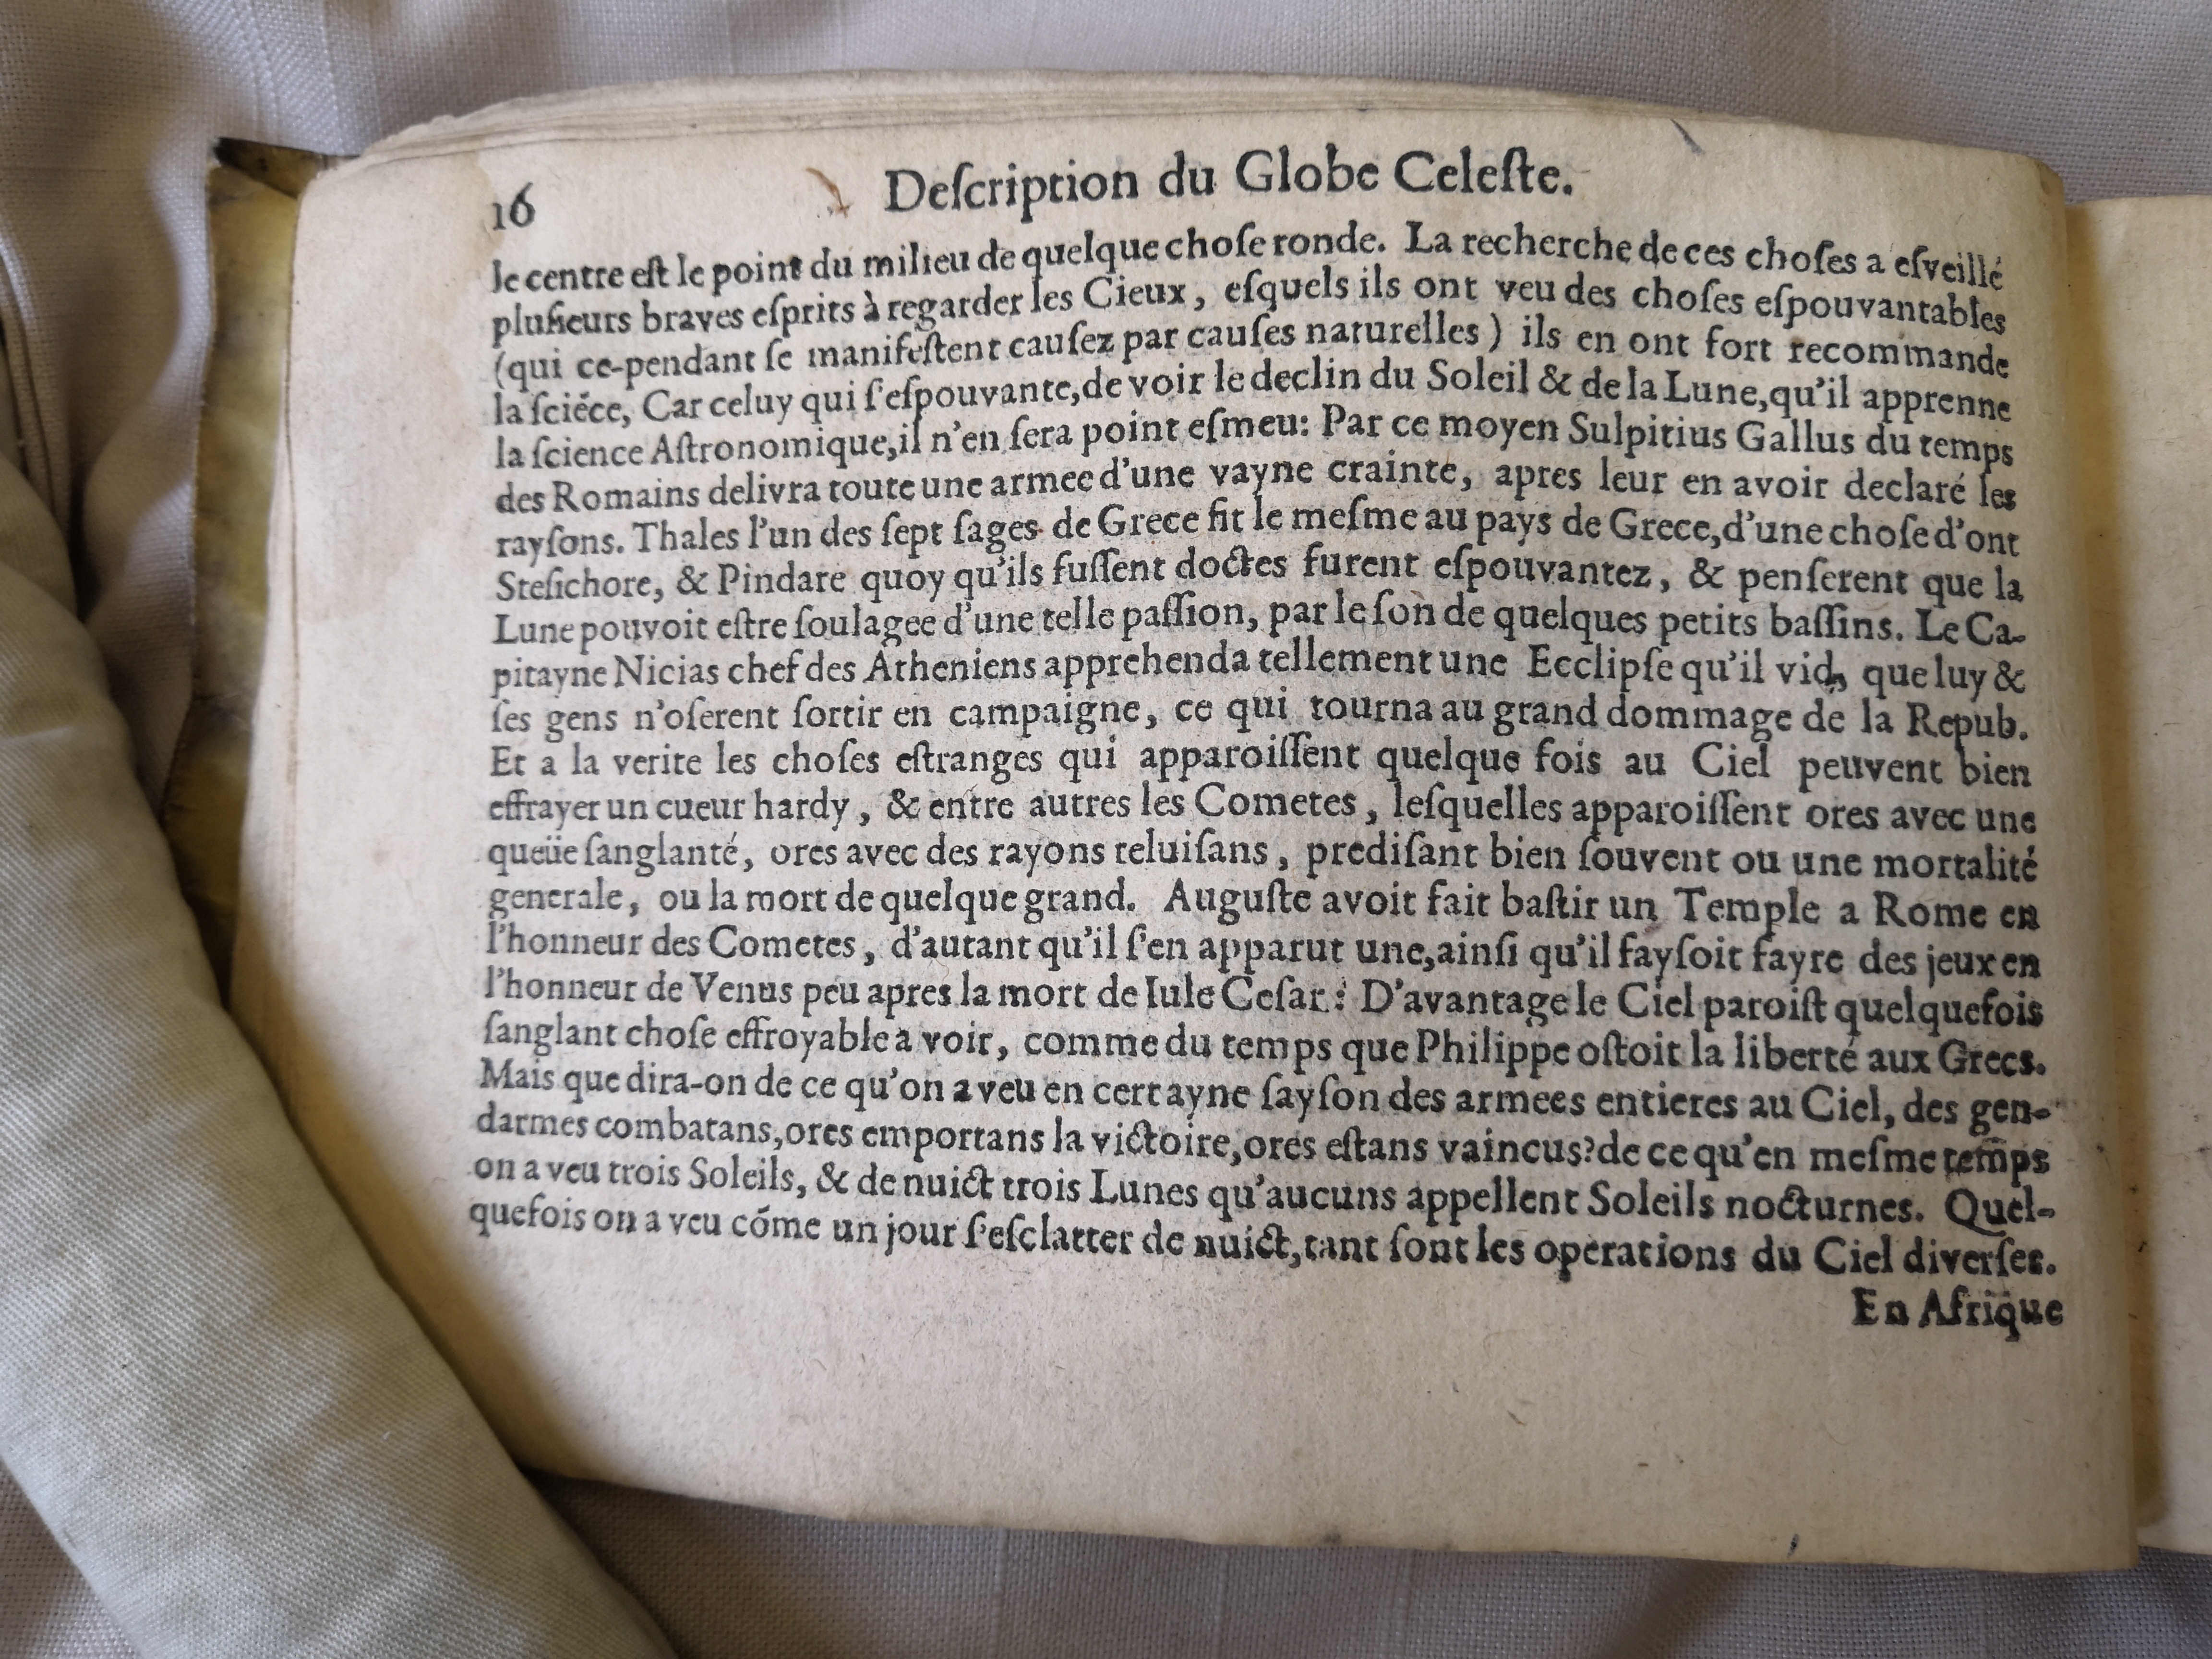 16 Deſcription du Globe Celeſte.
le centre eſt le point du milieu de quelque choſe ronde. La recherche de ces choſes a eſveillé
pluſieurs braves eſprits à regarder les Cieux, eſquels ils ont veu des choſes eſpouvantables
(qui ce-pendant ſe manifeſtent cauſez par cauſes naturelles) ils en ont fort recommande
la ſciéce, Car celuy qui ſ'eſpouvante, de voir le declin du Soleil & de la Lune, qu'il apprenne
la ſcience Aſtronomique, il n'en ſera point eſmeu: Par ce moyen Sulpitius Gallus du temps
des Romains delivra toute une armee d'une vayne crainte, apres leur en avoir declaré les
rayſons. Thales l'un des ſept ſages de Grece fit le meſme au pays de Grece, d'une choſe d'ont
Steſichore, & Pindare quoy qu'ils fuſſent doctes furent eſpouvantez, & penſerent que la
Lune pouvoit eſtre ſoulagee d'une telle paſſion, par le ſon de quelques petits baſſins. Le Ca-
pitayne Nicias chef des Atheniens apprehenda tellement une Ecclipſe qu'il vid, que luy &
ſes gens n'oſerent ſortir en campaigne, ce qui tourna au grand dommage de la Repub.
Et a la verite les choſes eſtranges qui apparoiſſent quelque fois au Ciel peuvent bien
effrayer un cueur hardy, & entre autres les Cometes, leſquelles apparoiſſent ores avec une
queüe ſanglanté, ores avec des rayons reluiſans, prediſant bien ſouvent ou une mortalité
generale, ou la mort de quelque grand. Auguſte avoit fait baſtir un Temple a Rome en
l'honneur des Cometes, d'autant qu'il ſ'en apparut une, ainſi qu'il fayſoit fayre des jeux en
l'honneur de Venus peu apres la mort de Iule Ceſar: D'avantage le Ciel paroiſt quelquefois
ſanglant choſe effroyable a voir, comme du temps que Philippe oſtoit la liberté aux Grecs.
Mais que dira-on de ce qu'on a veu en certayne ſayſon des armees entieres au Ciel, des gen-
darmes combatans, ores emportans la victoire, ores eſtans vaincus? de ce qu'en meſme temps
on a veu trois Soleils, & de nuict trois Lunes qu'aucuns appellent Soleils nocturnes. Quel-
quefois on a veu cóme un jour ſ'eſclatter de nuict, tant ſont les operations du Ciel diverſes.
En Afrique